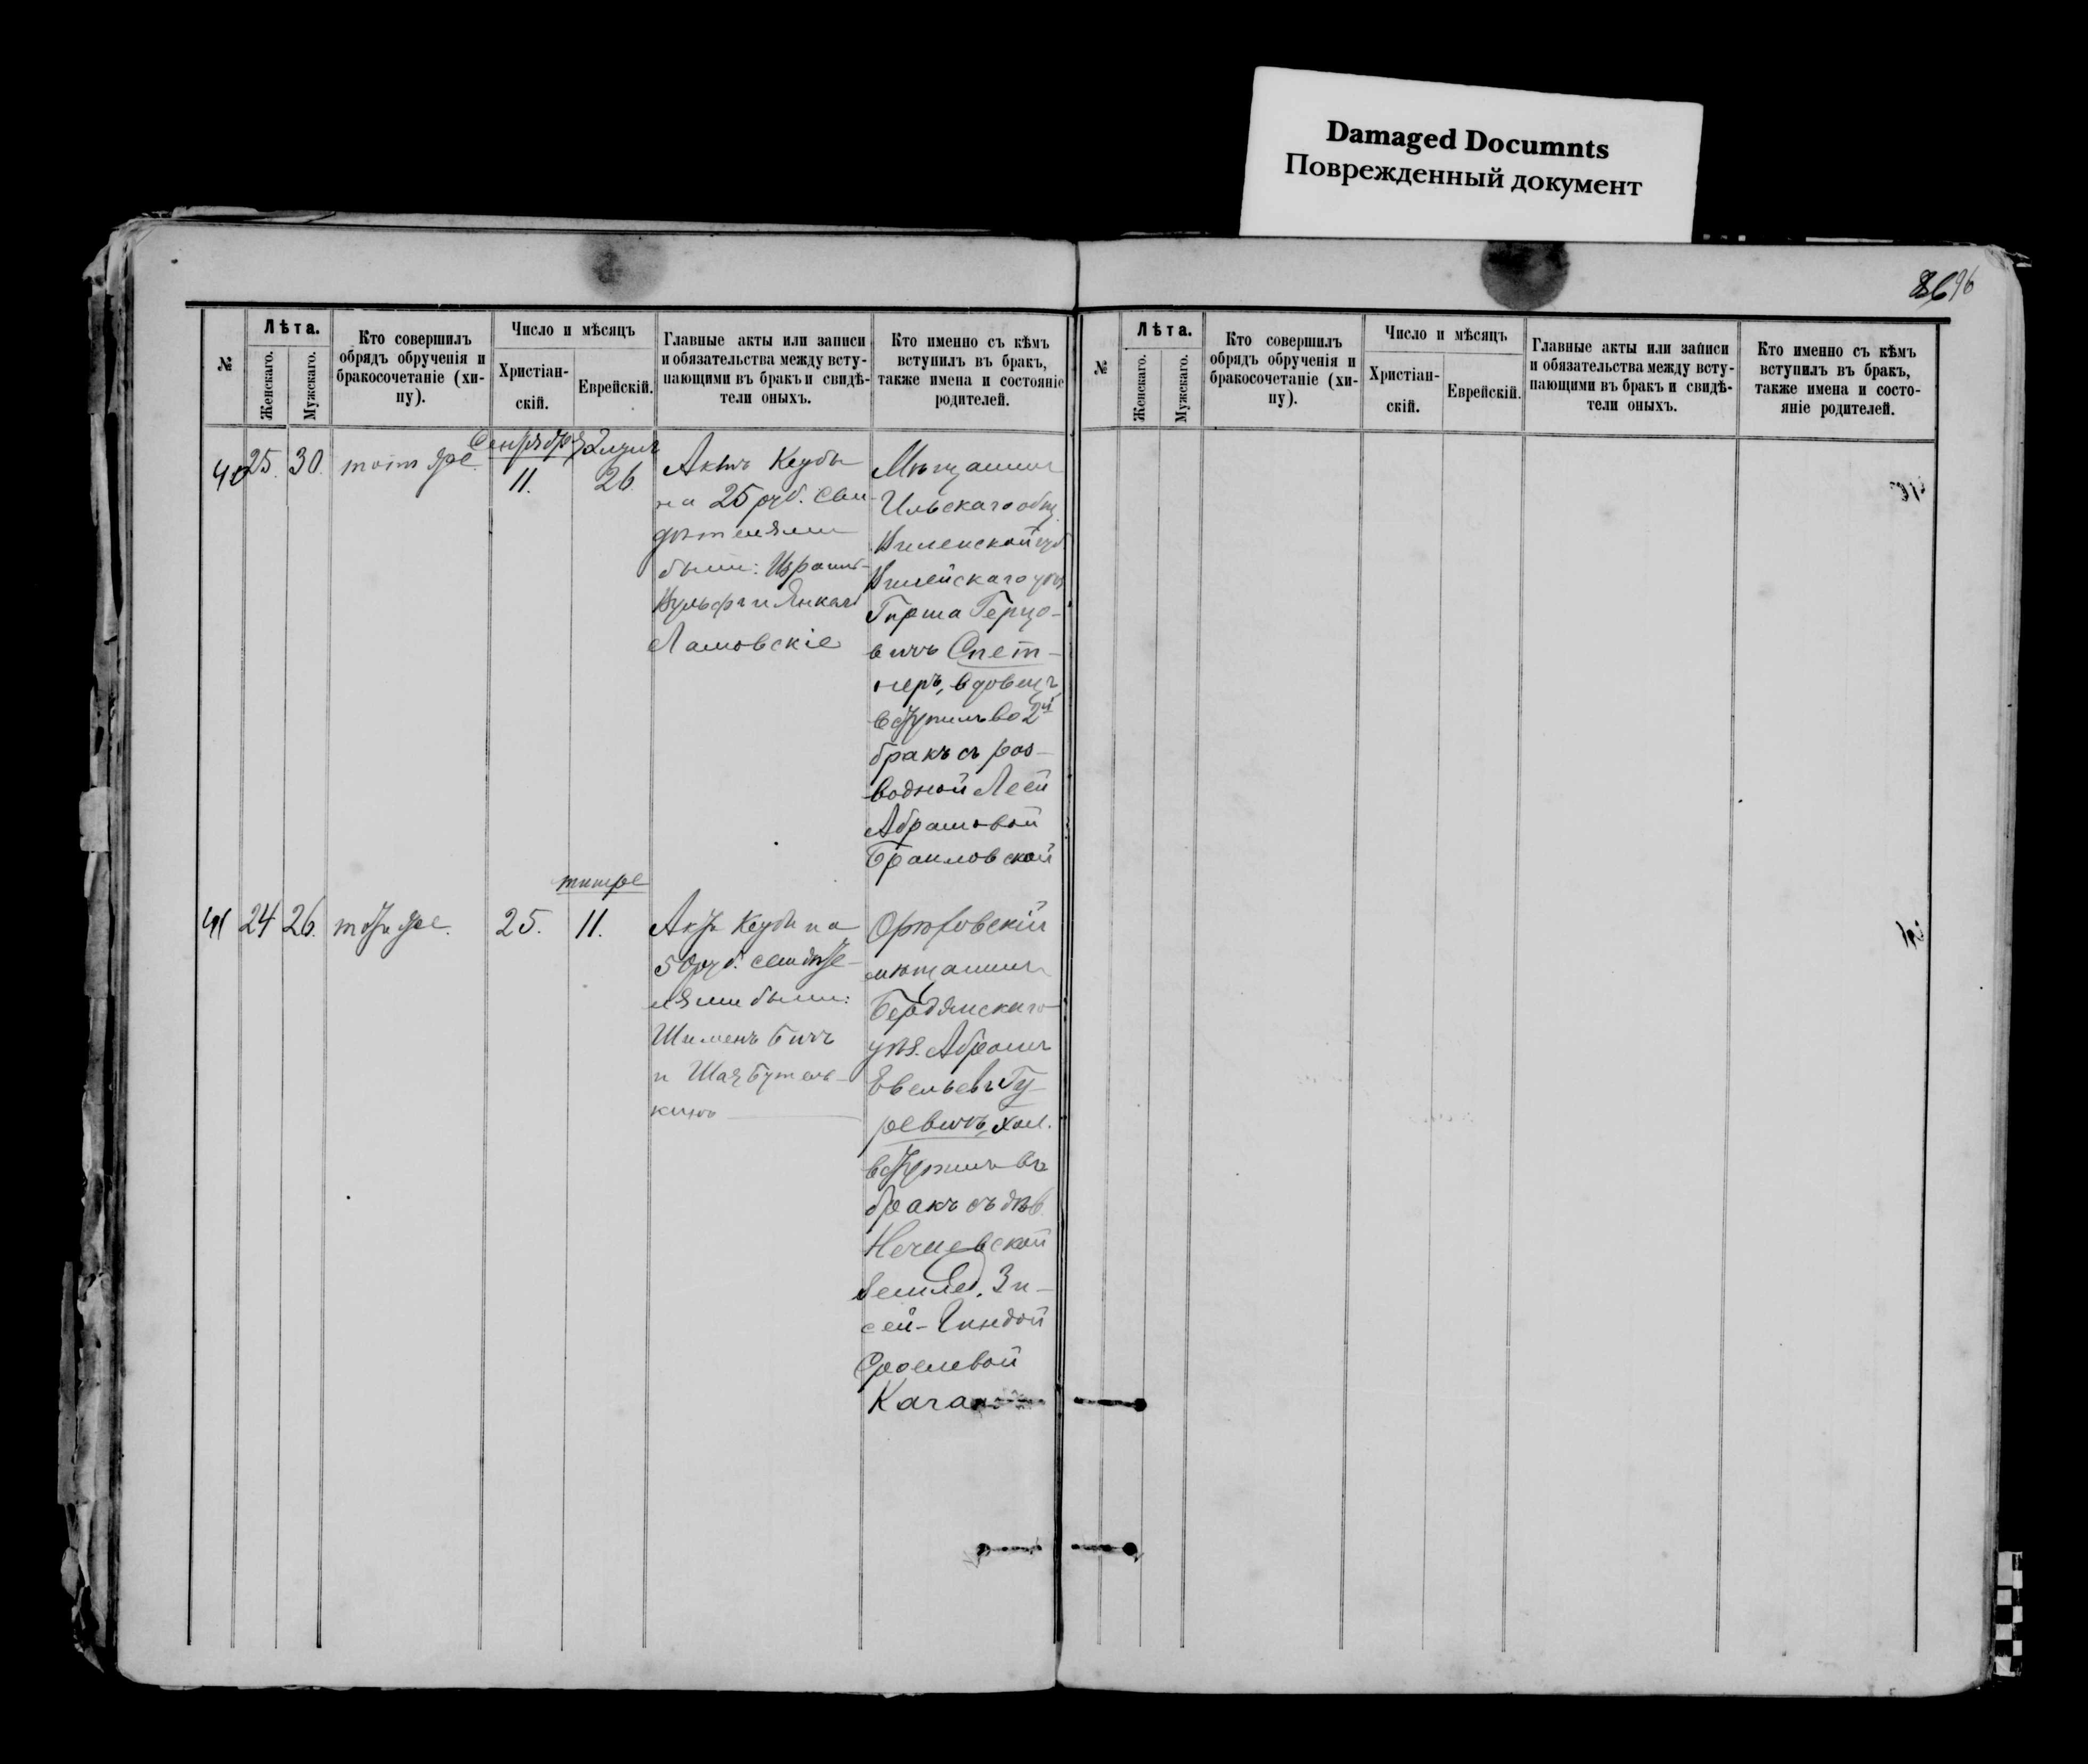 Damaged Documnts
Поврежденный документ
96
№
Лѣта.
Женскаго.
Мужскаго.
Кто совершилъ
обрядъ обрученія и
бракосочетаніе (хи-
пу).
Число и мѣсяцъ
Христіан-
скій.
Еврейскій.
Главные акты или записи
и обязательства между всту-
пающими въ бракъ и свидѣ-
тели оныхъ.
Кто именно съ кѣмъ
вступилъ въ бракъ,
также имена и состояніе
родителей.
40
25.
30.
тотъ же.
Сентября
11.
Элулъ
26.
Актъ Кеубы
на 25 руб. Сви-
дѣтелями
были: Израиль-
Вульфъ и Янкель
Ламовскіе
Мѣщанинъ
Ильскаго общ.
Виленской губ.
Вилейскаго уѣз.
Гирша Герцо-
вичъ Спет-
неръ, вдовецъ,
вступилъ во 2й
бракъ съ раз-
водной Леей
Абрамовой
Браиловской
41
24
26.
тотъ же.
25.
тишре
11.
Актъ Кеубы на
50 руб. свидѣте-
лями были:
Шименъ Бичъ
и Шая Бутель-
кинъ
Орѣховскій
мѣщанинъ
Бердянскаго
уѣз. Абрамъ
Евельевъ Гу-
ревичъ, хол.
вступилъ въ
бракъ съ дѣв.
Нечаевской
землед. Зи-
сей-Гиндой
Сролевой
Каган
№
Лѣта.
Женскаго.
Мужскаго.
Кто совершилъ
обрядъ обрученія и
бракосочетаніе (хи-
пу).
Число и мѣсяцъ
Христіан-
скій.
Еврейскій.
Главные акты или записи
и обязательства между всту-
пающими въ бракъ и свидѣ-
тели оныхъ.
Кто именно съ кѣмъ
вступилъ въ бракъ,
также имена и состо-
яніе родителей.